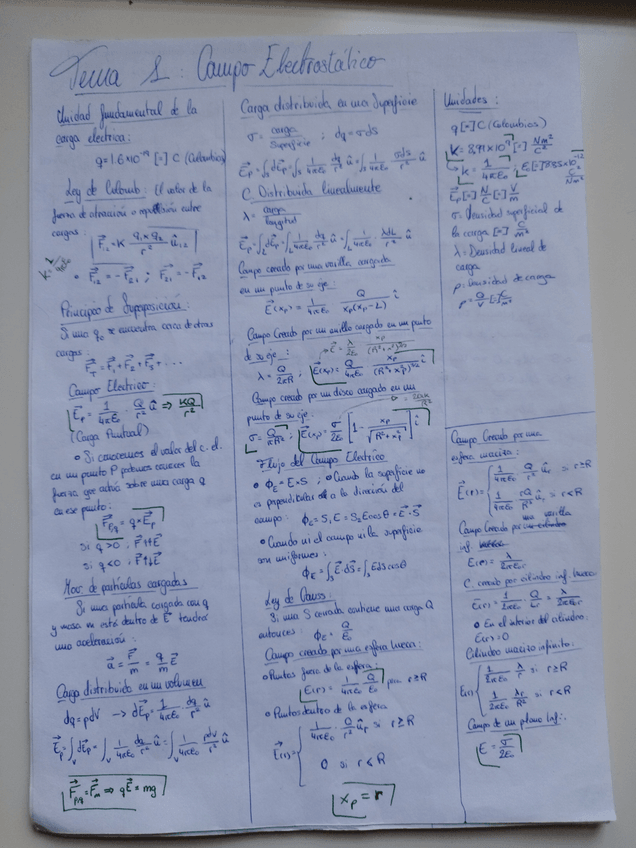 Tema 1: Campo Electrostático
Unidad fundamental de la
carga electrica:
q=1.6×10⁻¹⁹ [=] C (Culombios)
Ley de Culomb: El valor de la
fuerza de atracción o repulsión entre
cargas:
F⃗₁₂ = K q₁×q₂/r² û₁₂
• F⃗₁₂ = -F⃗₂₁ ; F⃗₂₁ = -F⃗₁₂
Principio de Superposición:
Si una q₀ se encuentra cerca de otras
cargas:
F⃗_T = F⃗₁ + F⃗₂ + F⃗₃ + ...
Campo Electrico:
E⃗p = 1/4πε₀ · Q/r² û ⇒ KQ/r²
(Carga Puntual)
• Si conocemos el valor del c. el.
en un punto P podemos conocer la
fuerza que actúa sobre una carga q
en ese punto:
= q × E⃗p
si q>0 ; F⃗↑↑E⃗
si q<0 ; F⃗↑↓E⃗
Mov. de partículas cargadas
Si una partícula cargada con q
y masa m está dentro de E⃗ tendrá
una aceleración:
a⃗ = F⃗/m = q/m E⃗
Carga distribuida en un volumen
dq = ρdV → dE⃗p = 1/4πε₀ · dq/r² û
E⃗p = ∫v dE⃗p = ∫v 1/4πε₀ dq/r² û = ∫v 1/4πε₀ ρdV/r² û
⇒ qE⃗ = mg
Carga distribuida en una Superficie
σ = carga/Superficie ; dq = σdS
E⃗p = ∫s dE⃗p = ∫s 1/4πε₀ dq/r² û = ∫s 1/4πε₀ · σdS/r² û
C. Distribuida linealmente
λ = carga/longitud
E⃗p = ∫L dE⃗p = ∫L 1/4πε₀ dq/r² û = ∫L 1/4πε₀ · λdL/r² û
Campo creado por una varilla cargada
en un punto de su eje:
E⃗(xp) = 1/4πε₀ Q/xp(xp-L) î
Campo Creado por un anillo cargado en un punto
de su eje:
λ = Q/2πR ; E⃗(xp) = Q/4πε₀ xp/(R²+xp²)^3/2 î
Campo creado por un disco cargado en un
punto de su eje:
σ = Q/πR² ; E⃗(xp) = σ/2ε₀ [1 - xp/√(R²+xp²)] î
Flujo del Campo Electrico
• Φ_E = E×S ; • Cuando la superficie no
es perpendicular a la dirección del
campo: Φ_E = S₁E = S₂E cosθ = E⃗·S⃗
• Cuando ni el campo ni la superficie
son uniformes:
Φ_E = ∫s E⃗ dS⃗ = ∫s E dS cosθ
Ley de Gauss:
Si una S cerrada contiene una carga Q
entonces: Φ_E = Q/ε₀
Campo creado por una esfera hueca:
• Puntos fuera de la esfera:
E(r) = 1/4πε₀ para r≥R
• Puntos dentro de la esfera
E⃗(r) = { 1/4πε₀ · Q/r² û si r≥R
0 si r<R
xp = r
Unidades:
q [=] C (Culombios)
K = 8,99×10⁹ [=] Nm²/C²
k = 1/4πε₀ ; ε₀ [=] 8.85×10⁻¹² C²/Nm²
E⃗p [=] N/C [=] V/m
σ: Densidad superficial de
la carga [=] C/m²
λ = Densidad lineal de
carga
ρ: Densidad de carga
ρ = Q/V [=] C/m³
Campo Creado por una
esfera maciza:
E⃗(r) = { 1/4πε₀ Q/r² û si r≥R
1/4πε₀ rQ/R³ û si r<R
Campo Creado por varilla
inf.
E(r) = λ/2πε₀r
C. creado por cilindro inf. hueco
E(r) = 1/2πε₀ · Q/Lr = λ/2πε₀r
• En el interior del cilindro:
E(r) = 0
Cilindro macizo infinito:
E(r) { 1/2πε₀ λ/r si r≥R
1/2πε₀ λr/R² si r<R
Campo de un plano inf.:
E = σ/2ε₀